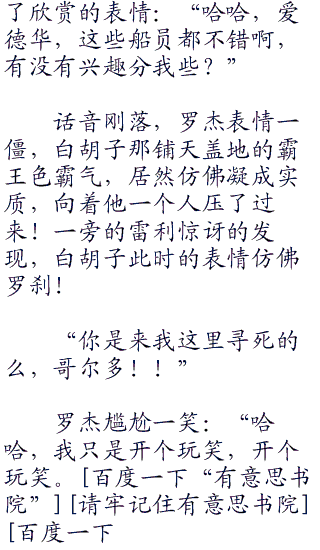 了欣赏的表情：“哈哈，爱
德华，这些船员都不错啊，
有没有兴趣分我些？”
话音刚落，罗杰表情一
僵，白胡子那铺天盖地的霸
王色霸气，居然仿佛凝成实
质，向着他一个人压了过
来！一旁的雷利惊讶的发
现，白胡子此时的表情仿佛
罗刹！
“你是来我这里寻死的
么，哥尔多！！”
罗杰尴尬一笑：“哈
哈，我只是开个玩笑，开个
玩笑。[百度一下“有意思书
院”][请牢记住有意思书院]
[百度一下